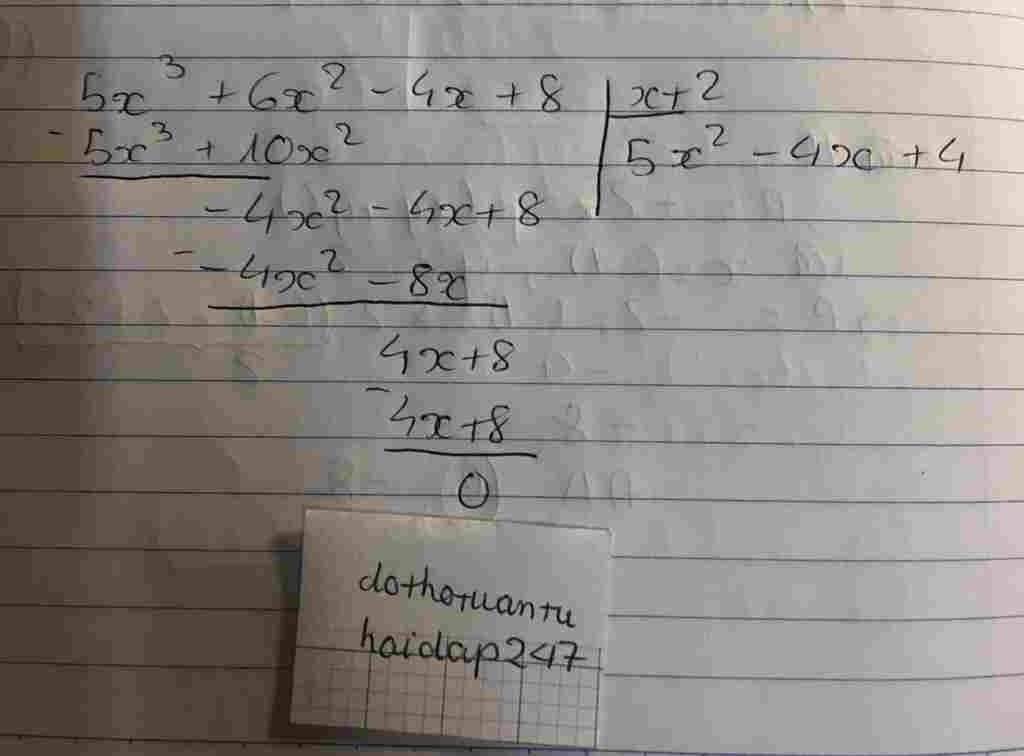 5x³ + 6x² - 4x + 8 | x+2
- 5x³ + 10x² | 5x² - 4x + 4
- 4x² - 4x + 8
- -4x² - 8x
4x + 8
- 4x + 8
0
dothotuantu
hoidap247